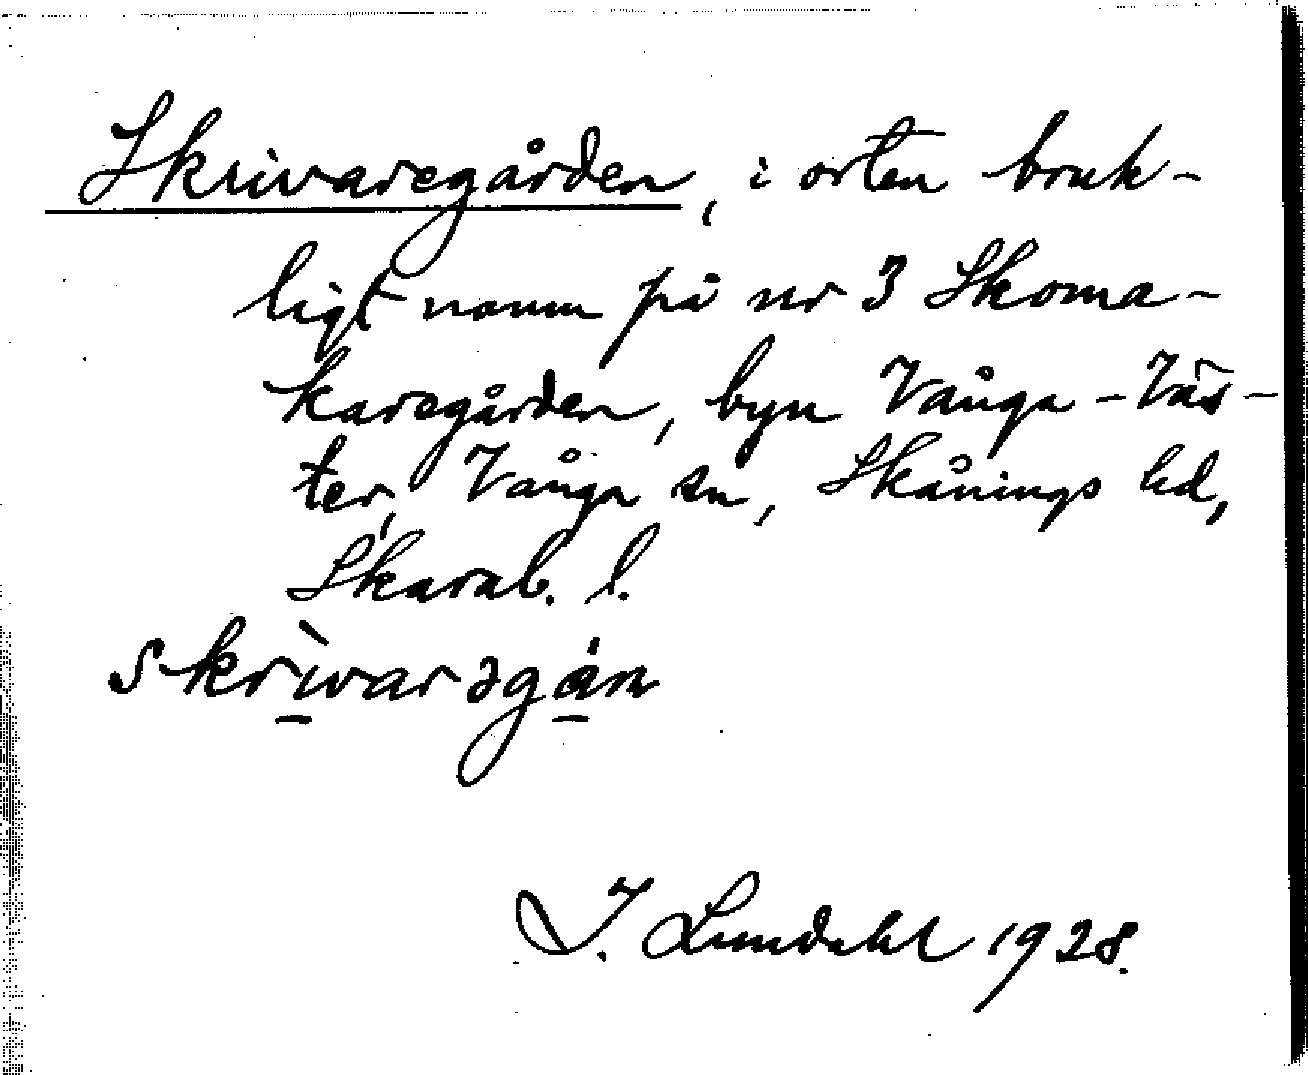 Skrivaregården, i orten bruk-
ligt namn på nr 3 Skoma-
karegården, byn Vånga-Väs-
ter, Vånga sn, Skånings hd,
Skarab. l.
skrìvarəgán
I. Lundahl 1928.